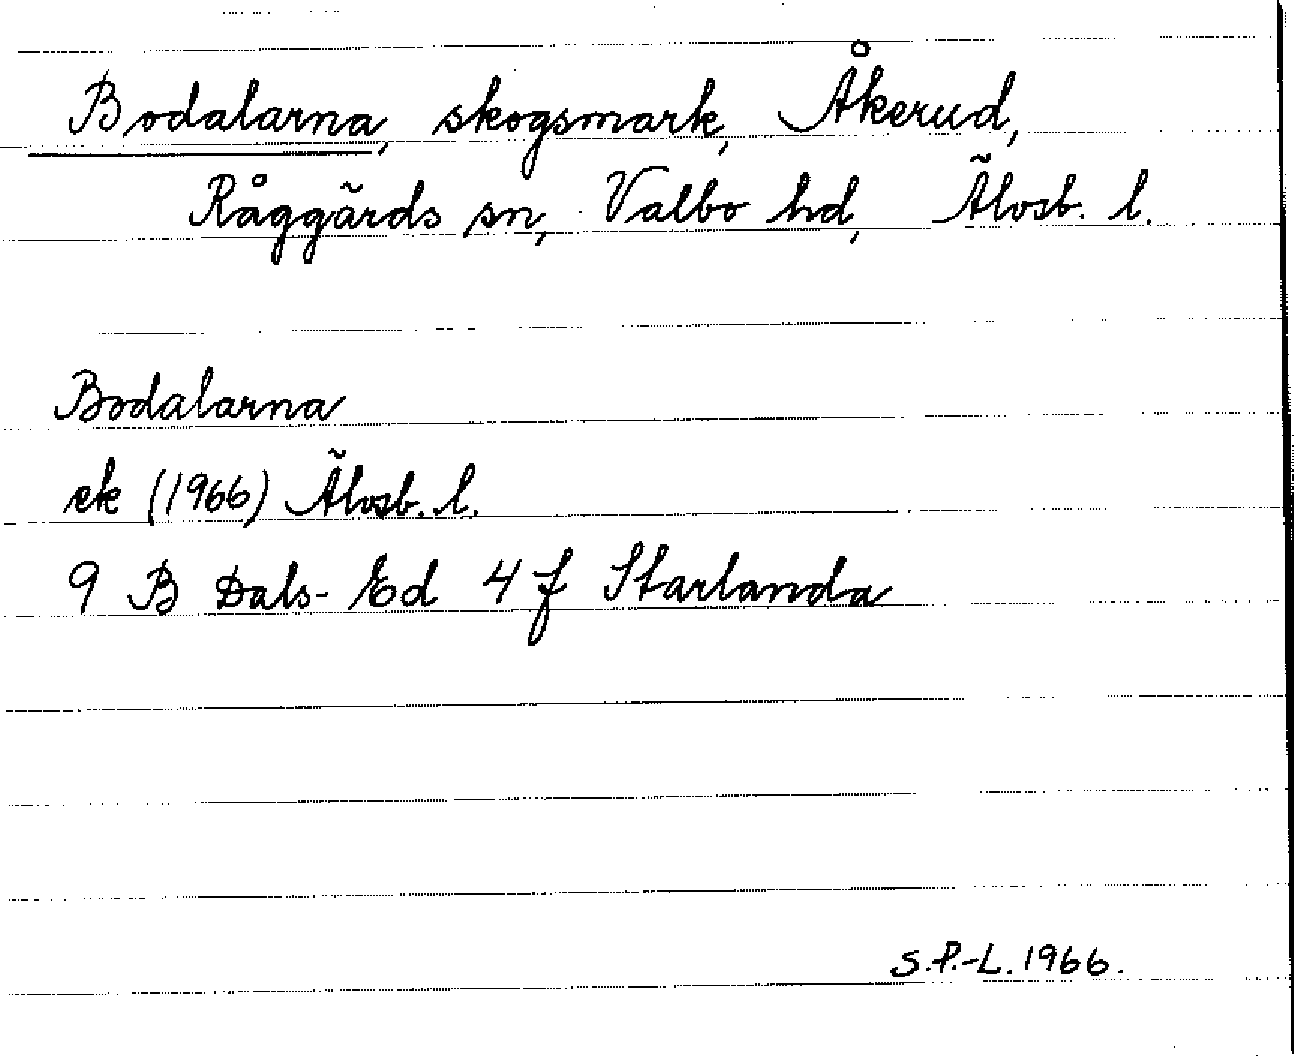 Bodalarna, skogsmark, Åkerud,
Råggärds sn, Valbo hd, Älvsb. l.
Bodalarna
ek (1966) Älvsb. l.
9 B Dals-Ed 4 f Starlanda
S.P.-L. 1966.